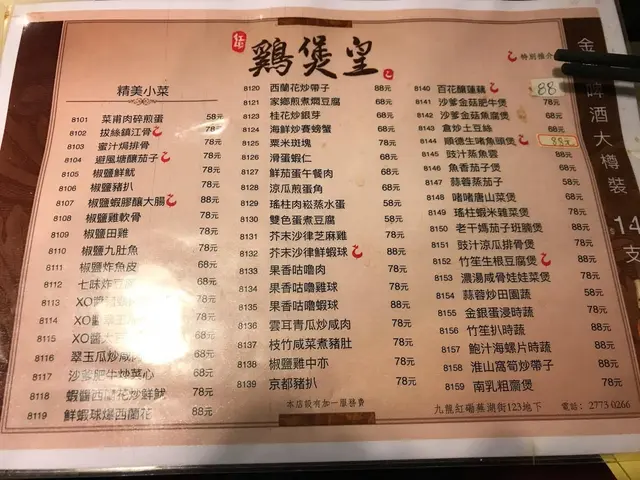 鷄煲皇
特別推介
精美小菜
8101 菜甫肉碎煎蛋 58元
8102 拔絲鎮江骨 78元
8103 蜜汁焗排骨 78元
8104 避風塘釀茄子 78元
8105 椒鹽鮮魷 78元
8106 椒鹽豬扒 78元
8107 椒鹽蝦膠釀大腸 88元
8108 椒鹽雞軟骨 78元
8109 椒鹽田雞 78元
8110 椒鹽九肚魚 78元
8111 椒鹽炸魚皮 68元
8112 七味炸豆腐 68元
8113 XO醬
8114 XO醬
8115 XO醬
8116 翠玉瓜炒咸肉
8117 沙爹肥牛炒菜心 68元
8118 蝦醬西蘭花炒鮮魷 78元
8119 鮮蝦球爆西蘭花 88元
8120 西蘭花炒帶子 88元
8121 家鄉煎煮燜豆腐 68元
8123 桂花炒銀芽 68元
8124 海鮮炒賽螃蟹 68元
8125 粟米斑塊 78元
8126 滑蛋蝦仁 68元
8127 鮮茄蛋牛餐肉 68元
8128 涼瓜煎蛋角 68元
8129 瑤柱肉崧蒸水蛋 58元
8130 雙色蛋煮豆腐 58元
8131 芥末沙律芝麻雞 78元
8132 芥末沙律鮮蝦球 88元
8133 果香咕嚕肉 78元
8134 果香咕嚕雞球 78元
8135 果香咕嚕蝦球 88元
8136 雲耳青瓜炒咸肉 78元
8137 枝竹咸菜煮豬肚 78元
8138 椒鹽雞中亦 78元
8139 京都豬扒 78元
8140 百花釀蓮藕 88
8141 沙爹金菇肥牛煲 78元
8142 沙爹金菇魚腐煲 68元
8143 倉炒土豆絲 58元
8144 順德生啫魚頭煲 88元
8145 豉汁蒸魚雲 88元
8146 魚香茄子煲 68元
8147 蒜蓉蒸茄子 58元
8148 啫啫唐山菜煲 68元
8149 瑤柱蝦米雜菜煲 78元
8150 老干媽茄子班腩煲 78元
8151 豉汁涼瓜排骨煲 78元
8152 竹笙生根豆腐煲 78元
8153 濃湯咸骨娃娃菜煲 78元
8154 蒜蓉炒田園蔬 58元
8155 金銀蛋浸時蔬 78元
8156 竹笙扒時蔬 78元
8157 鮑汁海螺片時蔬 88元
8158 淮山窩筍炒帶子 88元
8159 南乳粗齋煲 78元
本店設有加一服務費
九龍紅磡蕪湖街123地下 電話： 2773 0266
金
啤酒大樽裝
$14
支